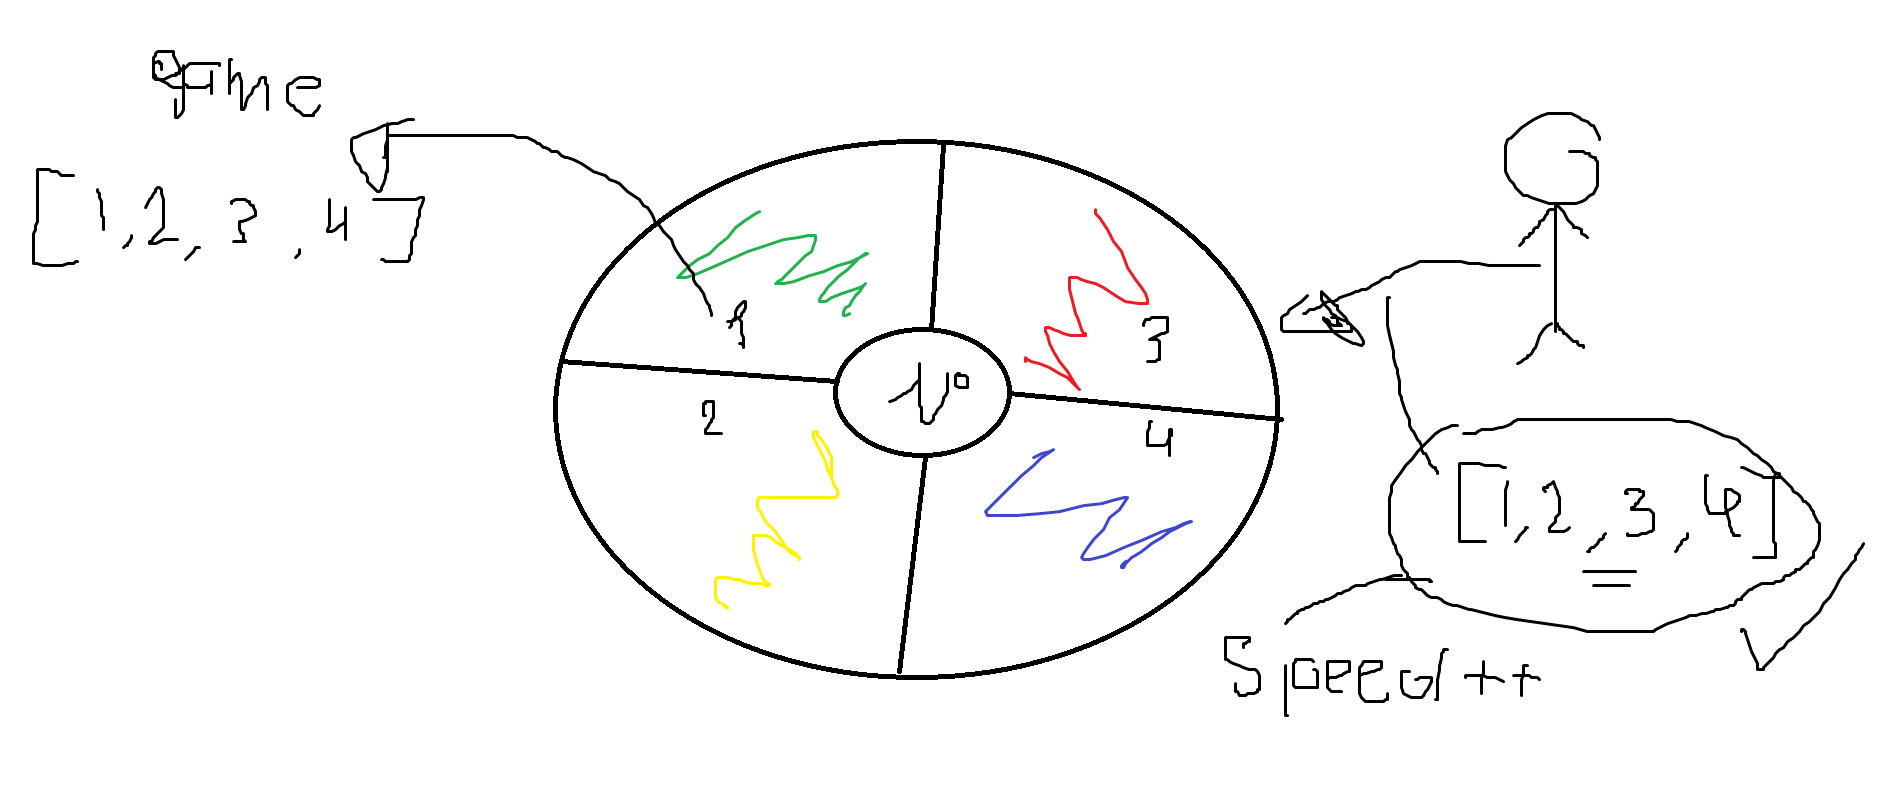 game
[1,2,3,4]
1
3
2
4
[1,2,3,4]
Speed++